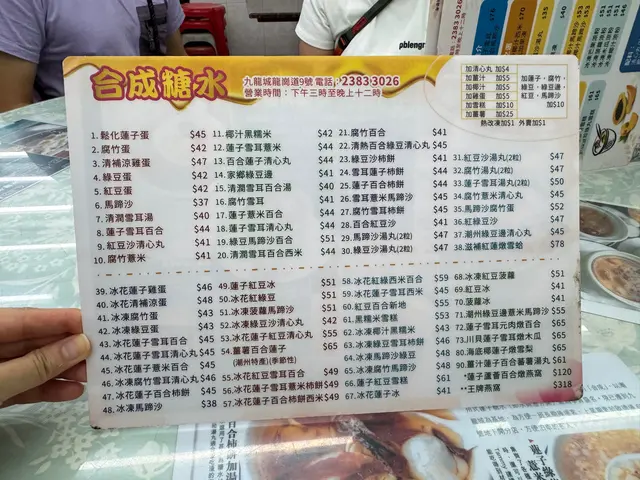 合成糖水
九龍城龍崗道9號 電話：2383 3026
營業時間：下午三時至晚上十二時
加清心丸 加$4
加薑汁 加$5
加椰汁 加$5
加雞蛋 加$5
加雪糕 加$10
加薑薯 加$25
加蓮子，腐竹，
綠豆，綠豆邊，
紅豆，馬蹄沙
加$10
熱改凍加$1 外賣加$1
1. 鬆化蓮子蛋 $45
2. 腐竹蛋 $42
3. 清補涼雞蛋 $47
4. 綠豆蛋 $42
5. 紅豆蛋 $42
6. 馬蹄沙 $37
7. 清潤雪耳湯 $40
8. 蓮子雪耳百合 $44
9. 紅豆沙清心丸 $41
10. 腐竹薏米 $41
11. 椰汁黑糯米 $42
12. 蓮子雪耳薏米 $44
13. 百合蓮子清心丸 $44
14. 家鄉綠豆邊 $41
15. 清潤雪耳百合湯 $40
16. 腐竹雪耳 $41
17. 蓮子薏米百合 $44
18. 蓮子雪耳清心丸 $44
19. 綠豆馬蹄沙百合 $51
20. 清潤雪耳百合西米 $44
21. 腐竹百合 $41
22. 清熱百合綠豆清心丸 $45
23. 綠豆沙柿餅 $41
24. 雪耳蓮子柿餅 $44
25. 蓮子百合柿餅 $44
26. 雪耳薏米馬蹄沙 $51
27. 腐竹雪耳柿餅 $44
28. 百合紅豆沙 $41
29. 馬蹄沙湯丸(2粒) $47
30. 綠豆沙湯丸(2粒) $47
31. 紅豆沙湯丸(2粒) $47
32. 腐竹湯丸(2粒) $47
33. 蓮子雪耳湯丸(2粒) $50
34. 腐竹馬蹄沙 $45
35. 馬蹄沙腐竹蛋 $52
36. 紅綠豆沙 $47
37. 潮州綠豆邊清心丸 $45
38. 滋補紅蓮燉雪蛤 $78
39. 冰花蓮子雞蛋 $46
40. 冰花清補涼 $48
41. 冰凍腐竹蛋 $43
42. 冰凍綠豆蛋 $43
43. 冰花蓮子雪耳百合 $45
44. 冰花蓮子雪耳清心丸 $45
45. 冰花蓮子薏米百合 $45
46. 冰凍腐竹雪耳清心丸 $45
47. 冰花蓮子百合柿餅 $45
48. 冰凍馬蹄沙 $38
49. 蓮子紅豆冰 $51
50. 冰花紅綠豆 $51
51. 冰凍菠蘿馬蹄沙 $51
52. 冰凍綠豆沙清心丸 $42
53. 冰花蓮子紅豆清心丸 $55
54. 薑薯百合蓮子 $65
(潮州特產)(季節性)
55. 冰花紅豆雪耳百合 $55
56. 冰花蓮子雪耳薏米柿餅 $49
57. 冰花蓮子百合柿餅西米 $49
58. 冰花紅綠西米百合 $59
59. 冰花蓮子雪耳西米 $45
60. 紅豆百合新地 $55
61. 黑糯米雪糕 $53
62. 冰凍椰汁黑糯米 $43
63. 冰凍腐竹馬蹄沙 $46
64. 冰凍馬蹄沙綠豆 $48
65. 冰凍馬蹄沙百合 $48
66. 蓮子紅豆雪糕 $61
67. 冰花蓮子冰 $41
68. 冰凍紅豆菠蘿 $51
69. 紅豆冰 $41
70. 菠蘿冰 $41
71. 潮州綠豆邊薏米馬蹄沙 $55
72. 蓮子雪耳元肉燉百合 $65
73. 川貝蓮子雪耳燉木瓜 $65
80. 海底椰蓮子燉雪梨 $65
90. 薑汁蓮子百合薯薯湯丸 $61
*蓮子蘆薈百合燉燕窩 $120
**王牌燕窩 $318
pblengr
2383 3026